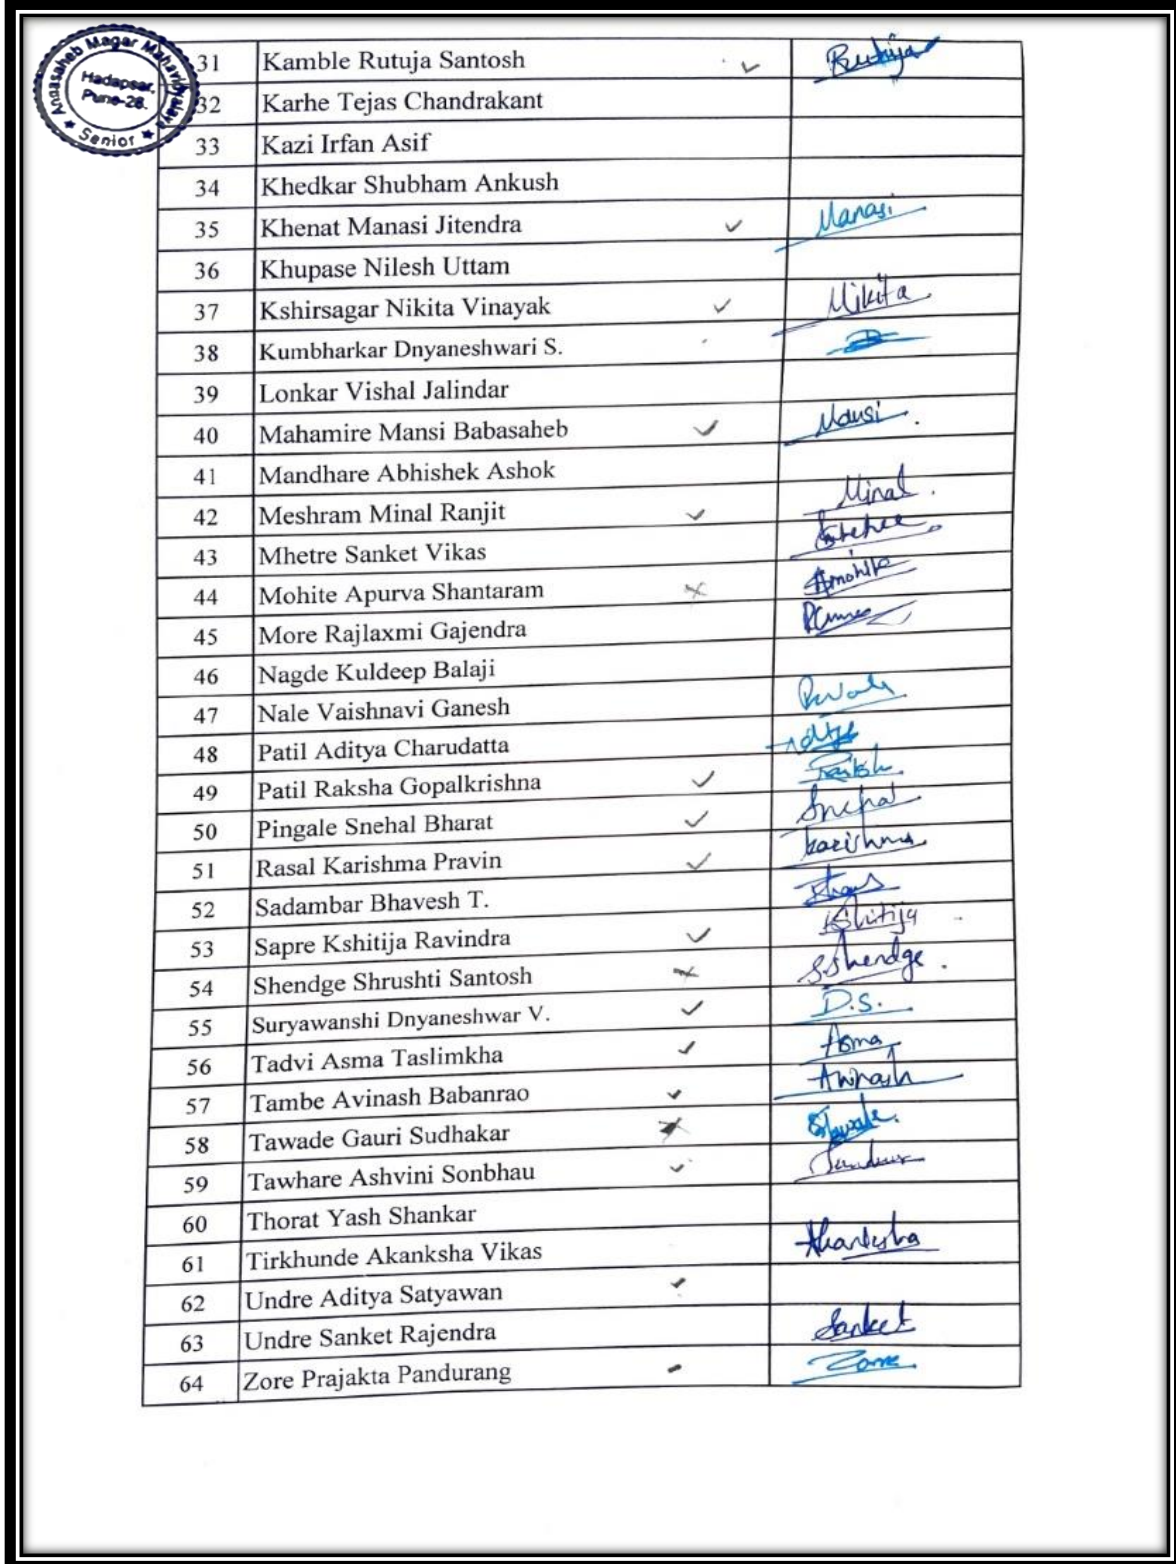 Annasaheb Magar Mahavidyalaya
Hadapsar,
Pune-28.
★ Senior ★
31 Kamble Rutuja Santosh ✓ Rutuja
32 Karhe Tejas Chandrakant
33 Kazi Irfan Asif
34 Khedkar Shubham Ankush
35 Khenat Manasi Jitendra ✓ Manasi
36 Khupase Nilesh Uttam
37 Kshirsagar Nikita Vinayak ✓ Nikita
38 Kumbharkar Dnyaneshwari S.
39 Lonkar Vishal Jalindar
40 Mahamire Mansi Babasaheb ✓ Mansi.
41 Mandhare Abhishek Ashok
42 Meshram Minal Ranjit ✓ Minal.
43 Mhetre Sanket Vikas
44 Mohite Apurva Shantaram Amohite
45 More Rajlaxmi Gajendra
46 Nagde Kuldeep Balaji
47 Nale Vaishnavi Ganesh
48 Patil Aditya Charudatta
49 Patil Raksha Gopalkrishna ✓
50 Pingale Snehal Bharat ✓ Snehal
51 Rasal Karishma Pravin ✓ karishma
52 Sadambar Bhavesh T.
53 Sapre Kshitija Ravindra ✓ Kshitija
54 Shendge Shrushti Santosh S.Shendge.
55 Suryawanshi Dnyaneshwar V. ✓ D.S.
56 Tadvi Asma Taslimkha ✓ Asma
57 Tambe Avinash Babanrao ✓ Avinash
58 Tawade Gauri Sudhakar
59 Tawhare Ashvini Sonbhau ✓
60 Thorat Yash Shankar
61 Tirkhunde Akanksha Vikas Akanksha
62 Undre Aditya Satyawan ✓
63 Undre Sanket Rajendra Sanket
64 Zore Prajakta Pandurang Zore